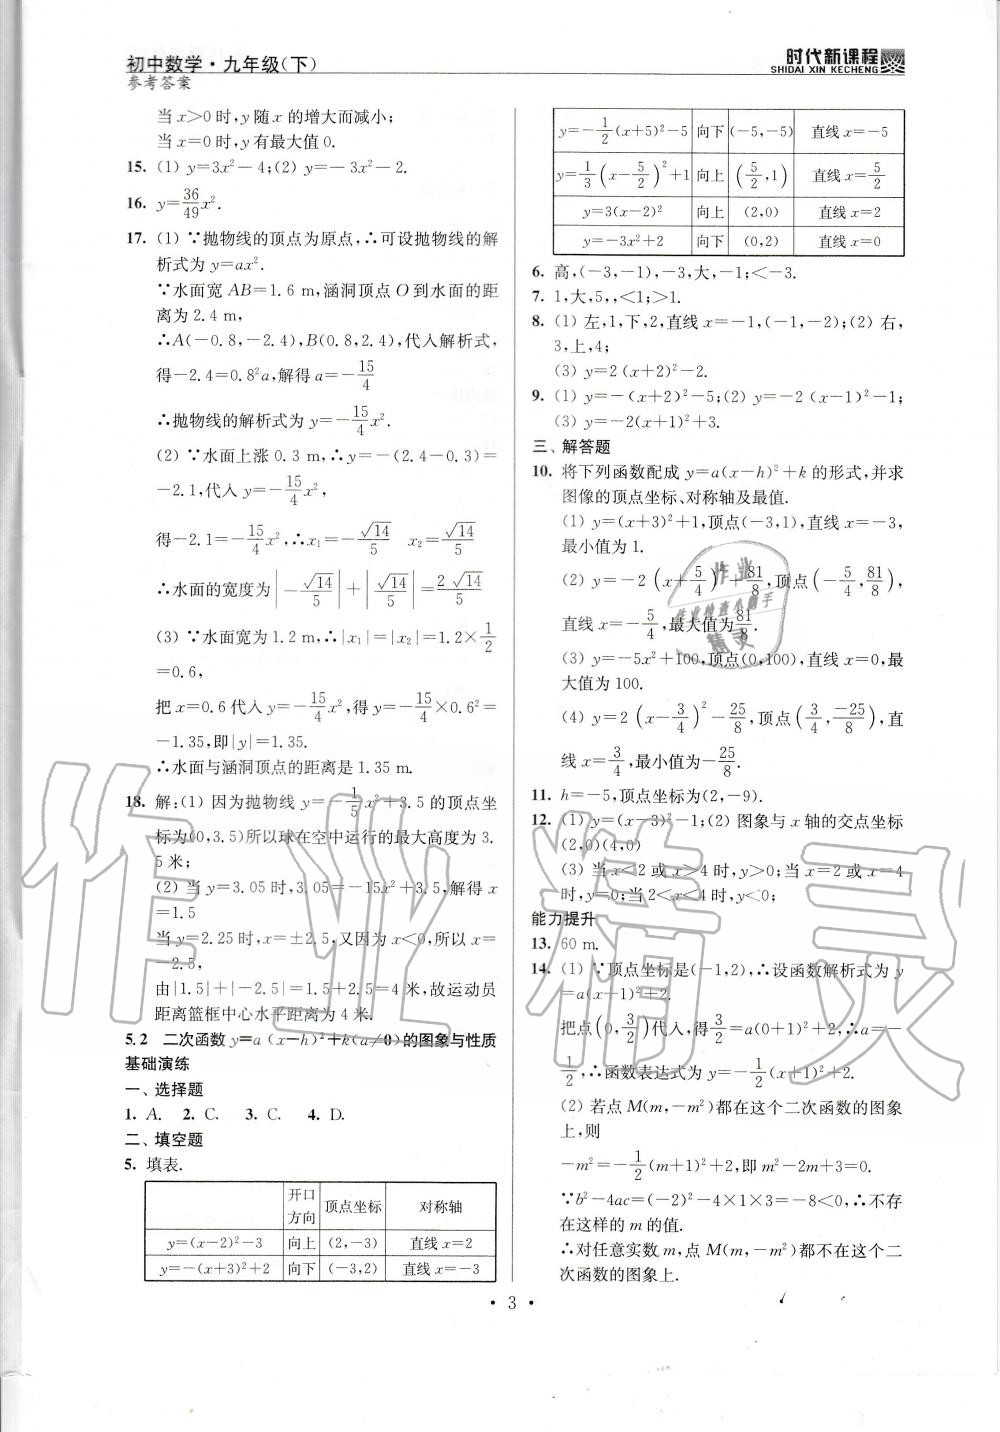 初中数学·九年级(下)
参考答案
时代新课程
SHIDAI XIN KECHENG
当x>0时,y随x的增大而减小;
当x=0时,y有最大值0.
15. (1) y=3x²-4;(2) y=-3x²-2.
16. y=36/49x².
17. (1) ∵抛物线的顶点为原点,∴可设抛物线的解
析式为y=ax².
∵水面宽AB=1.6 m,涵洞顶点O到水面的距
离为2.4 m,
∴A(-0.8,-2.4),B(0.8,2.4),代入解析式,
得-2.4=0.8²a,解得a=-15/4
∴抛物线的解析式为y=-15/4x².
(2) ∵水面上涨0.3 m,∴y=-(2.4-0.3)=
-2.1,代入y=-15/4x²,
得-2.1=-15/4x²,∴x₁=-√14/5 x₂=√14/5
∴水面的宽度为|-√14/5|+|√14/5|=2√14/5
(3) ∵水面宽为1.2 m,∴|x₁|=|x₂|=1.2×1/2
=0.6,
把x=0.6代入y=-15/4x²,得y=-15/4×0.6²=
-1.35,即|y|=1.35.
∴水面与涵洞顶点的距离是1.35 m.
18. 解:(1) 因为抛物线y=-1/5x²+3.5的顶点坐
标为(0,3.5)所以球在空中运行的最大高度为3.
5米;
(2) 当y=3.05时,3.05=-15x²+3.5,解得x
=1.5
当y=2.25时,x=±2.5,又因为x<0,所以x=
-2.5,
由|1.5|+|-2.5|=1.5+2.5=4米,故运动员
距离篮框中心水平距离为4米.
5.2 二次函数y=a(x-h)²+k(a≠0)的图象与性质
基础演练
一、选择题
1. A. 2. C. 3. C. 4. D.
二、填空题
5. 填表.
开口方向 顶点坐标 对称轴
y=(x-2)²-3 向上 (2,-3) 直线x=2
y=-(x+3)²+2 向下 (-3,2) 直线x=-3
y=-1/2(x+5)²-5 向下 (-5,-5) 直线x=-5
y=1/3(x-5/2)²+1 向上 (5/2,1) 直线x=5/2
y=3(x-2)² 向上 (2,0) 直线x=2
y=-3x²+2 向下 (0,2) 直线x=0
6. 高,(-3,-1),-3,大,-1;<-3.
7. 1,大,5,,<1;>1.
8. (1) 左,1,下,2,直线x=-1,(-1,-2);(2) 右,
3,上,4;
(3) y=2(x+2)²-2.
9. (1) y=-(x+2)²-5;(2) y=-2(x-1)²-1;
(3) y=-2(x+1)²+3.
三、解答题
10. 将下列函数配成y=a(x-h)²+k的形式,并求
图像的顶点坐标、对称轴及最值.
(1) y=(x+3)²+1,顶点(-3,1),直线x=-3,
最小值为1.
(2) y=-2(x+5/4)²+81/8,顶点(-5/4,81/8),
直线x=-5/4,最大值为81/8.
(3) y=-5x²+100,顶点(0,100),直线x=0,最
大值为100.
(4) y=2(x-3/4)²-25/8,顶点(3/4,-25/8),直
线x=3/4,最小值为-25/8.
11. h=-5,顶点坐标为(2,-9).
12. (1) y=(x-3)²-1;(2) 图象与x轴的交点坐标
(2,0)(4,0)
(3) 当x<2或x>4时,y>0;当x=2或x=4
时,y=0;当2<x<4时,y<0;
能力提升
13. 60 m.
14. (1) ∵顶点坐标是(-1,2),∴设函数解析式为y
=a(x+1)²+2.
把点(0,3/2)代入,得3/2=a(0+1)²+2,∴a=-
1/2,∴函数表达式为y=-1/2(x+1)²+2.
(2) 若点M(m,-m²)都在这个二次函数的图象
上,则
-m²=-1/2(m+1)²+2,即m²-2m+3=0.
∵b²-4ac=(-2)²-4×1×3=-8<0,∴不存
在这样的m的值.
∴对任意实数m,点M(m,-m²)都不在这个二
次函数的图象上.
作业精灵
作业
作业检查小助手
精灵
· 3 ·